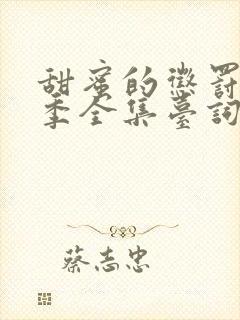 甜蜜的懲罰
季全集臺詞
蔡志忠